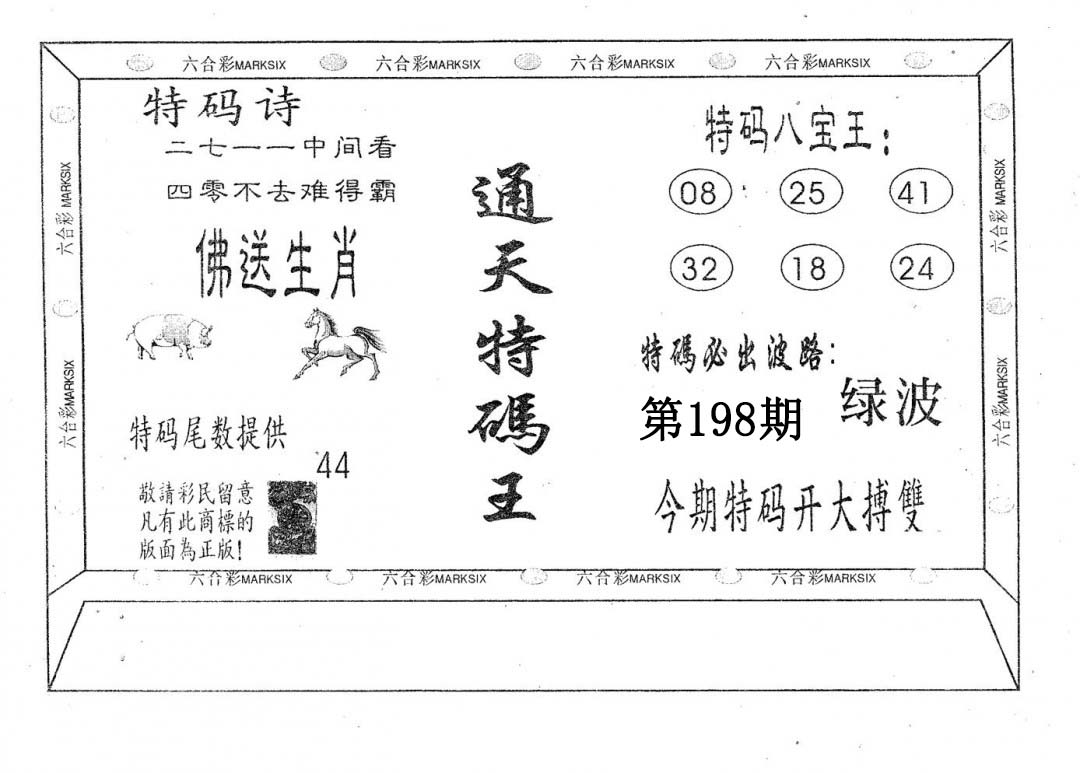 六合彩MARKSIX 六合彩MARKSIX 六合彩MARKSIX 六合彩MARKSIX
六合彩 MARKSIX
六合彩MARKSIX
特码诗
二七一一中间看
四零不去难得霸
佛送生肖
特码尾数提供
44
敬請彩民留意
凡有此商標的
版面為正版!
通天特碼王
特码八宝王:
08 25 41
32 18 24
特碼必出波路:
绿波
第198期
今期特码开大搏雙
六合彩 MARKSIX
六合彩MARKSIX
六合彩MARKSIX 六合彩MARKSIX 六合彩MARKSIX 六合彩MARKSIX